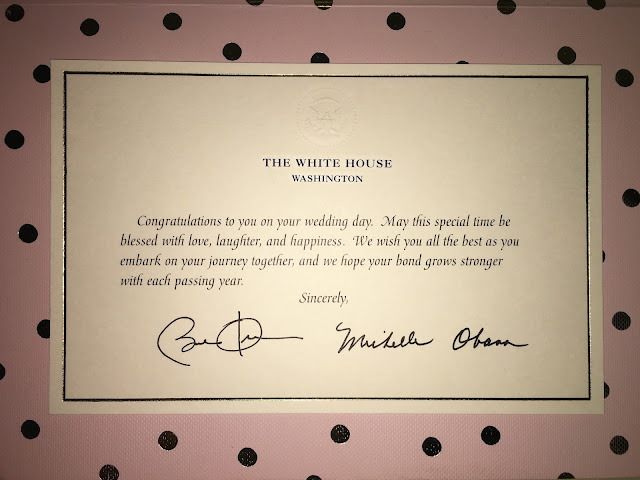 THE WHITE HOUSE
WASHINGTON
Congratulations to you on your wedding day. May this special time be
blessed with love, laughter, and happiness. We wish you all the best as you
embark on your journey together, and we hope your bond grows stronger
with each passing year.
Sincerely,
Michelle Obama